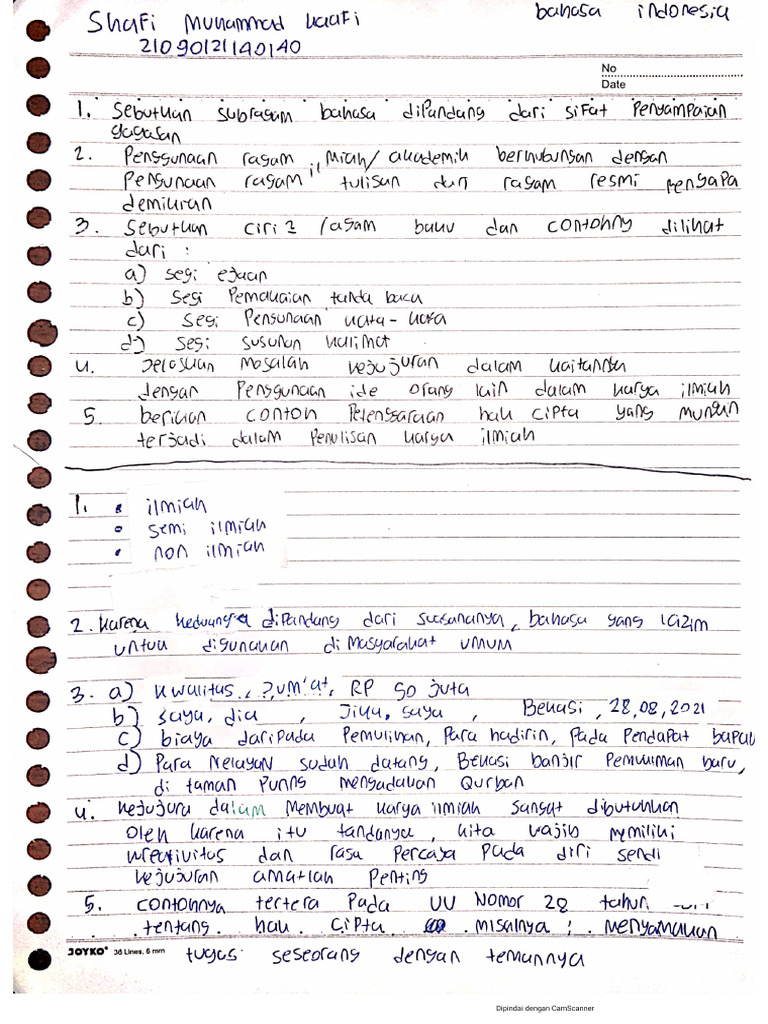 Shafi Muhammad Kaafi
bahasa indonesia
21090121140140
No
Date
1. Sebutkan subragam bahasa dipandang dari sifat Penyampaian
gagasan
2. Penggunaan ragam ilmiah/akademik berhubungan dengan
Pengunaan ragam tulisan dan ragam resmi mengapa
demikian
3. Sebutkan ciri2 ragam baku dan contohny dilihat
dari :
a) segi ejaan
b) Segi Pemakaian tanda baca
c) segi Pengunaan kata-kata
d) segi susunan kalimat
4. Jelaskan masalah kejujuran dalam kaitannya
dengan Penggunaan ide orang lain dalam karya ilmiah
5. berikan contoh Pelenggaraan hak cipta yang mungkin
terjadi dalam Penulisan karya ilmiah
1. • ilmiah
• semi ilmiah
• non ilmiah
2. karena keduanya dipandang dari suasananya, bahasa yang lazim
untuk digunakan di Masyarakat umum
3. a) kwalitas, Jum'at, RP 50 juta
b) saya, dia , Jika, saya , Bekasi, 28,08,2021
c) biaya daripada Pemulihan, Para hadirin, pada Pendapat bapak
d) Para Nelayan sudah datang, Bekasi banjir Pemukiman baru,
di taman Punng mengadakan Qurban
4. kejujura dalam membuat karya ilmiah sangat dibutuhkan
oleh karena itu tandanya, kita wajib memiliki
kreativitas dan rasa Percaya Pada diri sendi
kejujuran amatlah Penting
5. contohnya tertera Pada UU Nomor 28 tahun
tentang hak cipta misalnya : menyamakan
tugas seseorang dengan temannya
JOYKO 36 Lines, 6 mm
Dipindai dengan CamScanner